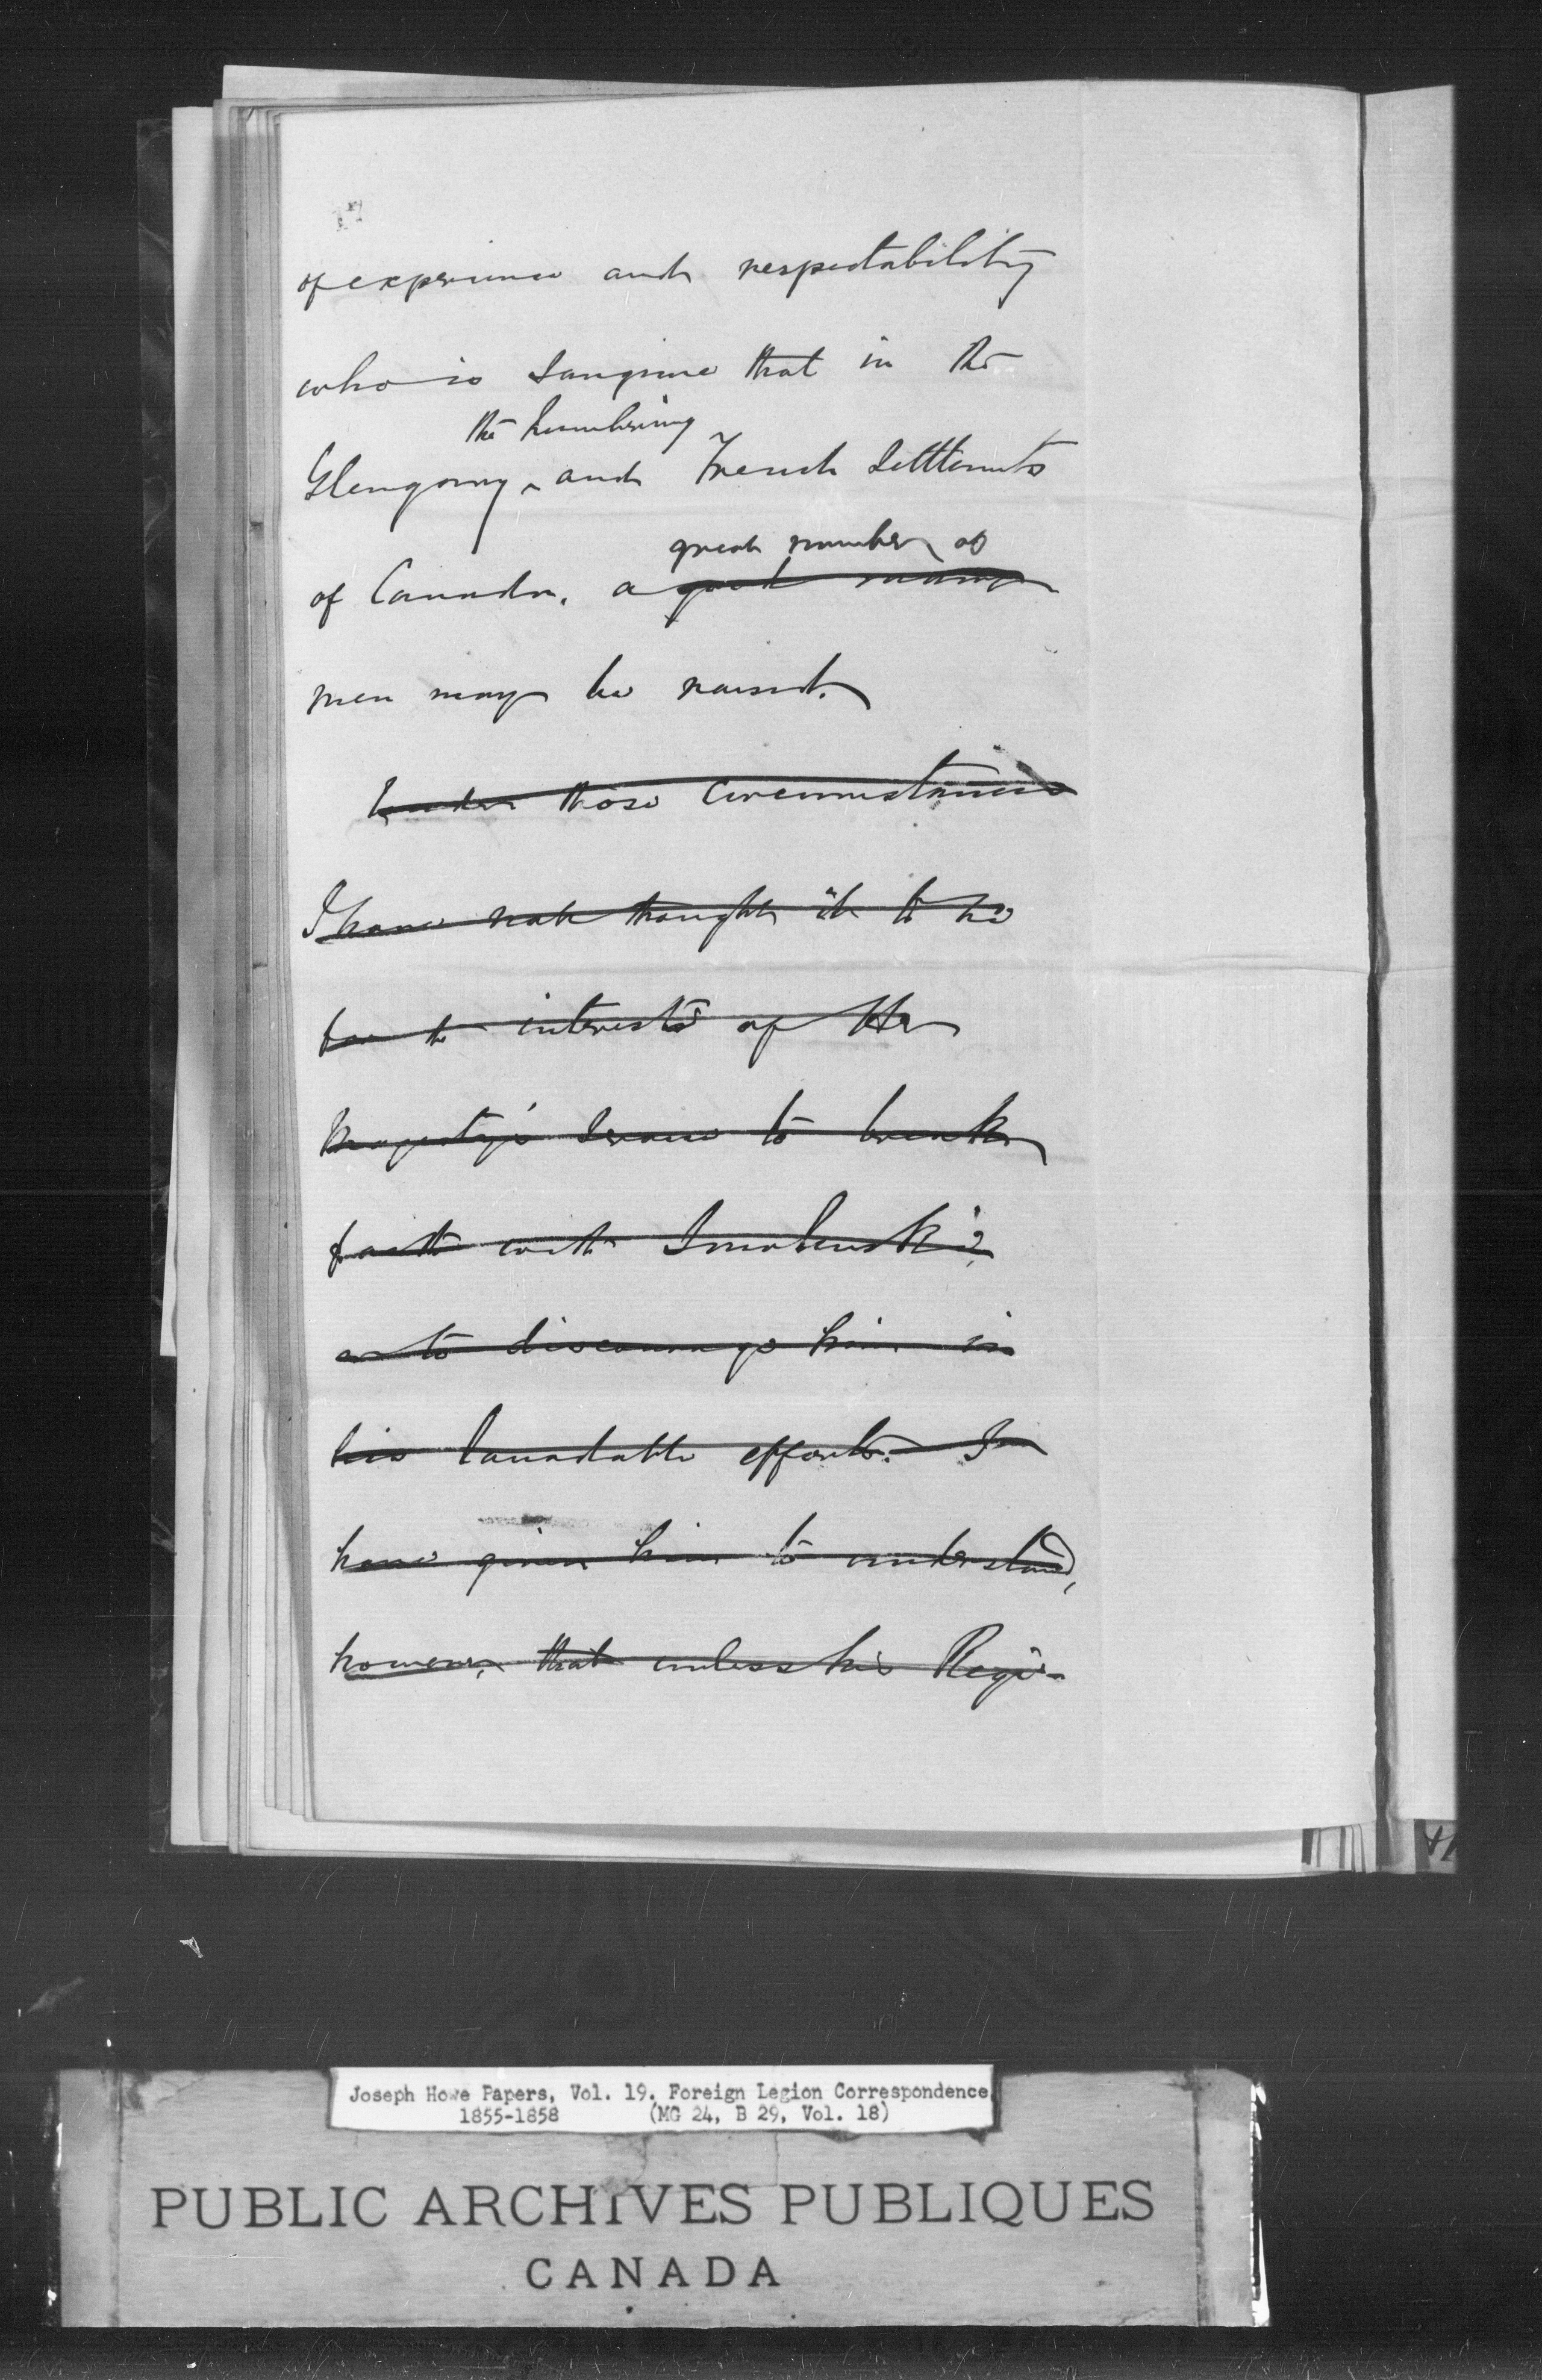 17
of experience and respectability
who is sanguine that in the
the Lumbering
Glengarry ^ and French Settlements
great number of
of Canada, a good many
men may be raised.
Under those circumstances
I have not thought it to be
for the interests of Her
Majesty's Service to break
faith with Smolenski,
or to discourage him in
his laudable efforts. I
have given him to understand,
however, that unless his Regi-
Joseph Howe Papers, Vol. 19. Foreign Legion Correspondence
1855-1858 (MG 24, B 29, Vol. 18)
PUBLIC ARCHIVES PUBLIQUES
CANADA